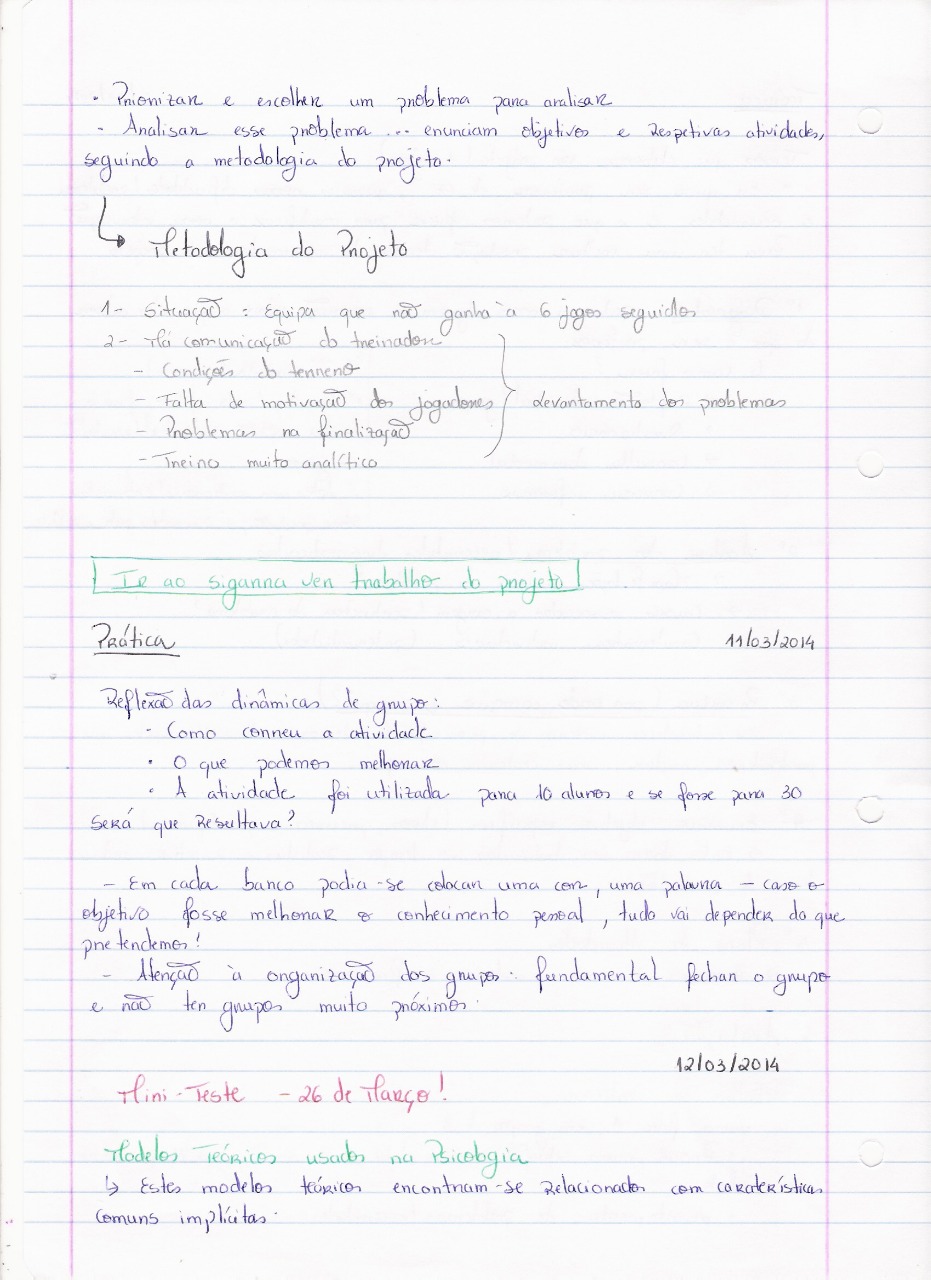 · Priorizar e escolher um problema para analisar
- Analisar esse problema ... enunciam objetivos e respetivas atividades,
seguindo a metodologia do projeto.
↳ Metodologia do Projeto
1- Situação : Equipa que não ganha à 6 jogos seguidos
2- Má comunicação do treinador
- Condições do terreno
- Falta de motivação dos jogadores } Levantamento dos problemas
- Problemas na finalização
- Treino muito analítico
Ir ao sigarra ver trabalho do projeto
Prática 11/03/2014
Reflexão das dinâmicas de grupo:
- Como correu a atividade
· O que podemos melhorar
· A atividade foi utilizada para 10 alunos e se fosse para 30
será que resultava?
- Em cada banco podia-se colocar uma cor, uma palavra - caso o
objetivo fosse melhorar o conhecimento pessoal, tudo vai depender do que
pretendemos!
- Atenção à organização dos grupos: fundamental fechar o grupo
e não ter grupos muito próximos.
12/03/2014
Mini-Teste - 26 de Março!
Modelos Teóricos usados na Psicologia
↳ Estes modelos teóricos encontram-se relacionados com caraterísticas
comuns implícitas.